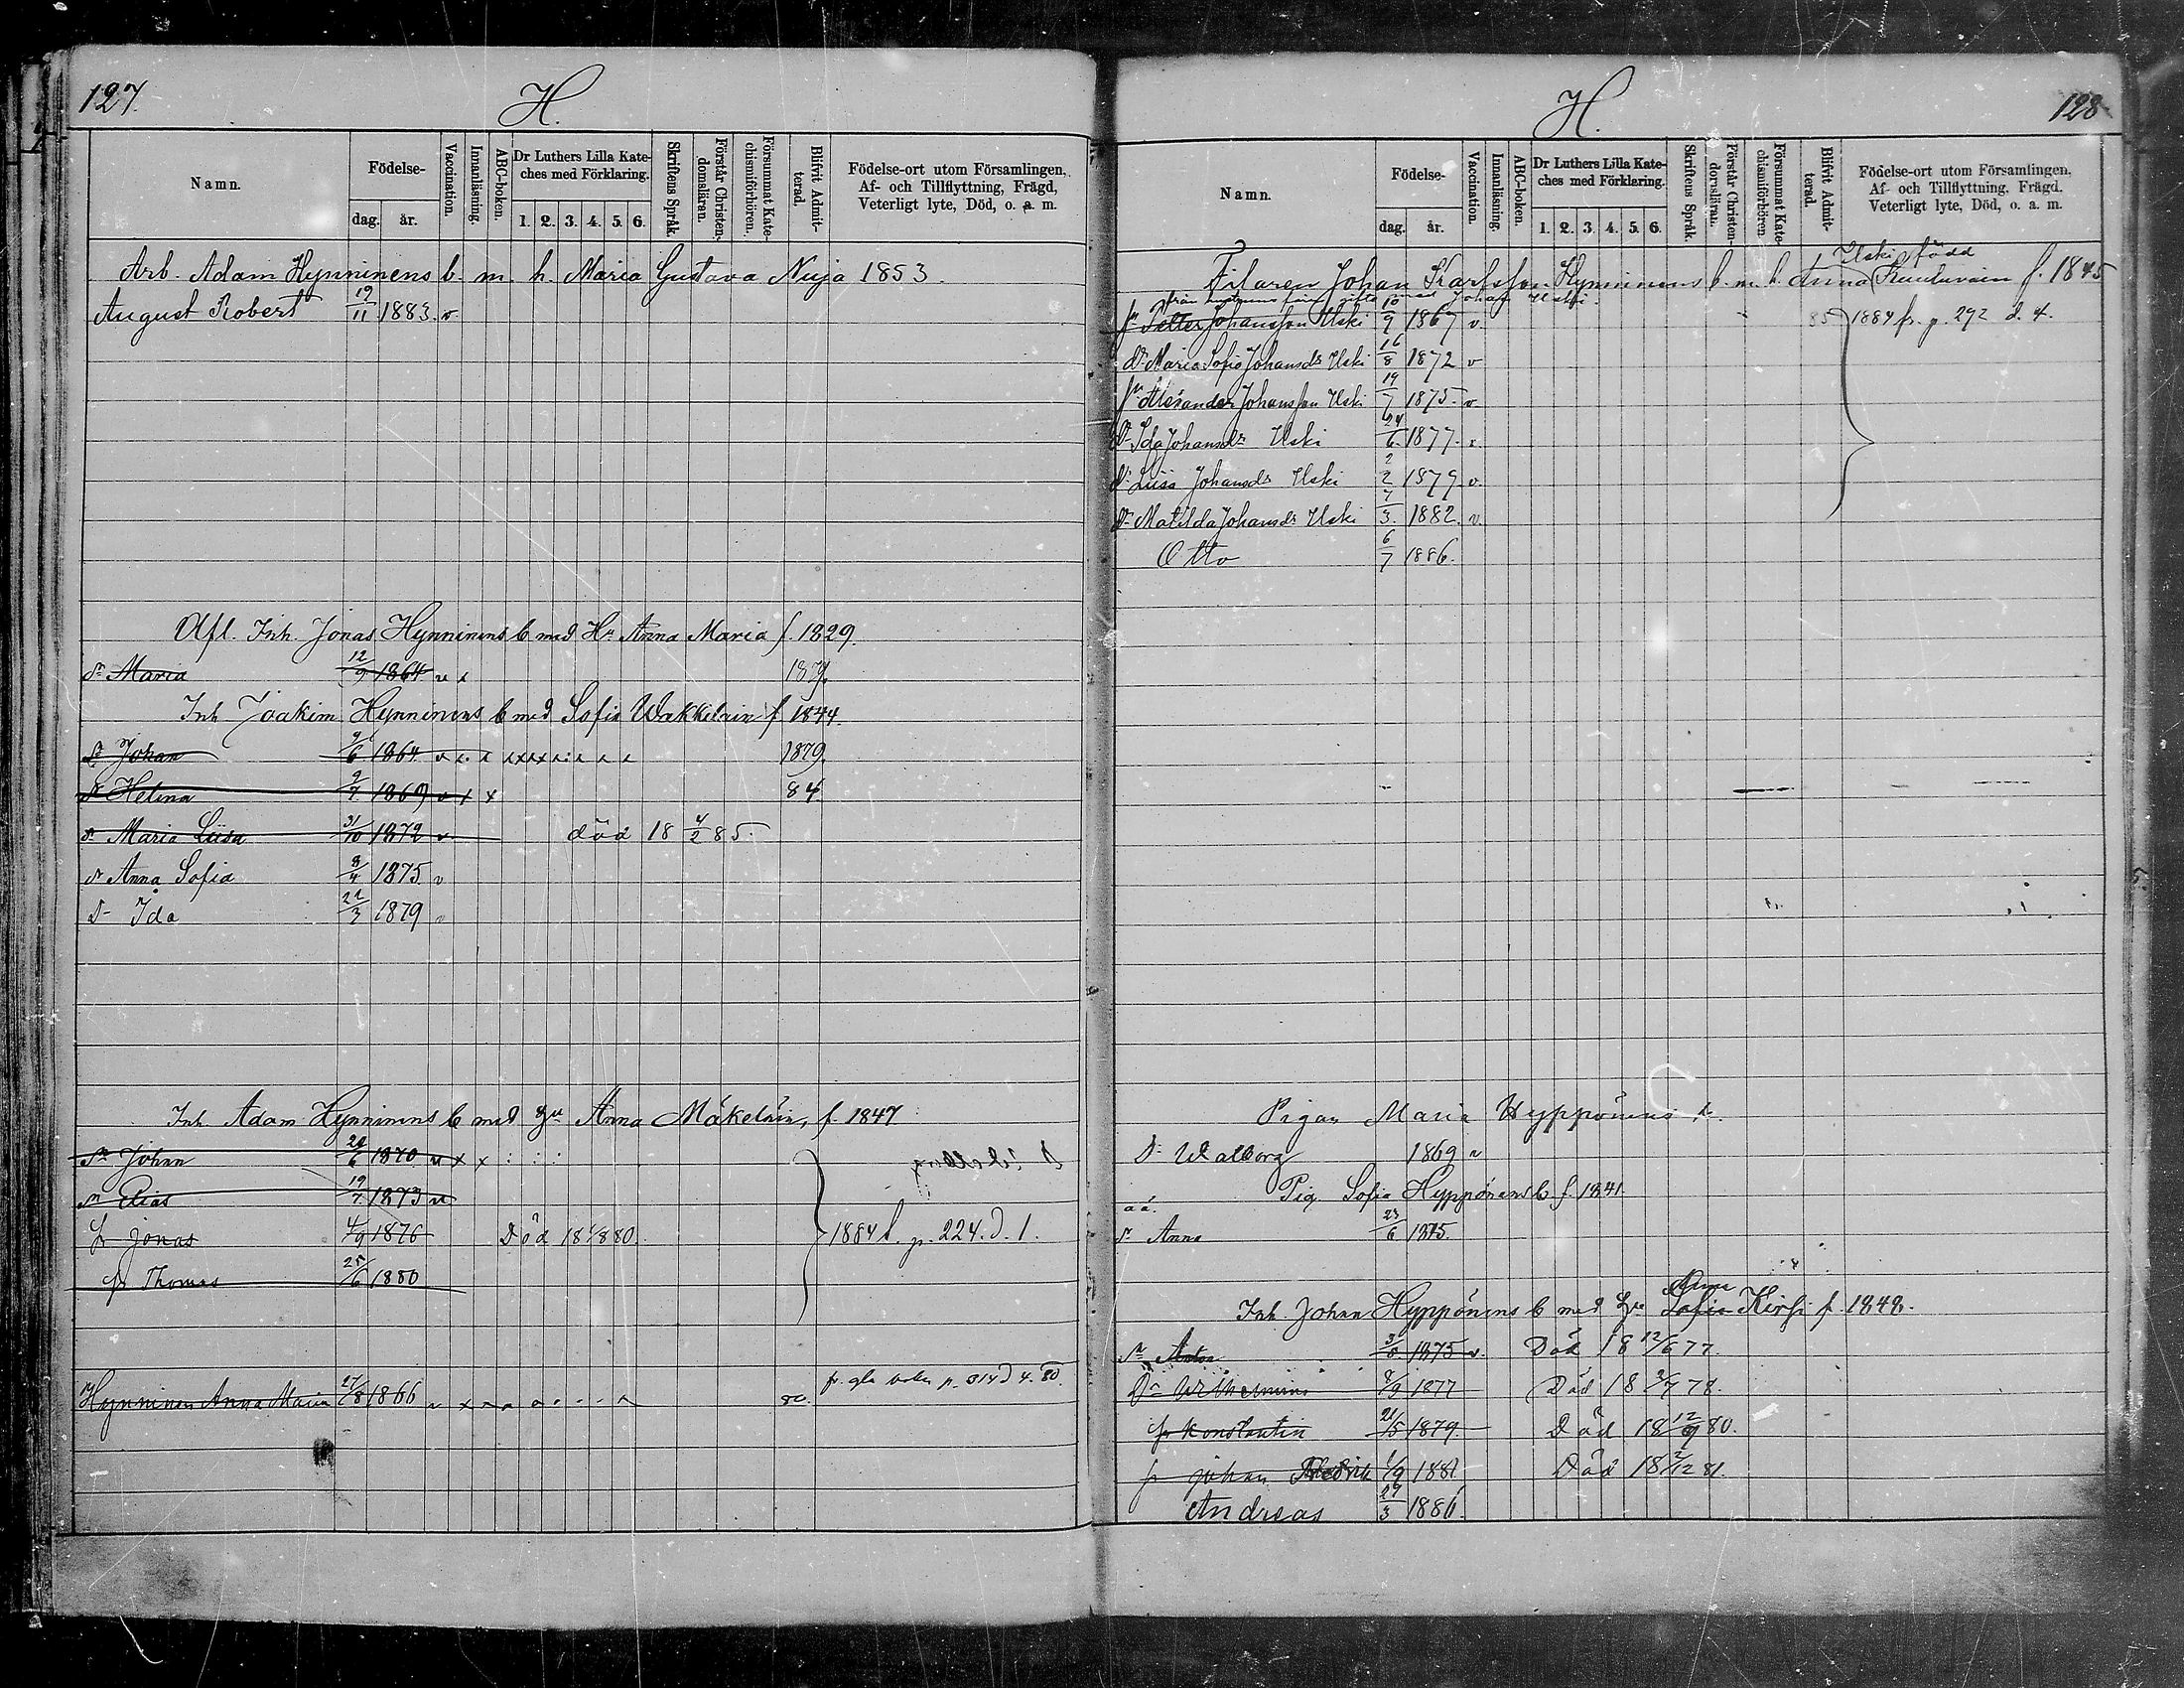 127.
H.
Namn.
Födelse-
dag.
år.
Vaccination.
Innanläsning.
ABC-boken.
Dr Luthers Lilla Kate-
ches med Förklaring.
1. 2. 3. 4. 5. 6.
Skriftens Språk.
Förstår Christen-
domsläran.
Försummat Kate-
chismiförhören.
Blifvit Admit-
terad.
Födelse-ort utom Församlingen,
Af- och Tillflyttning, Frägd,
Veterligt lyte, Död, o. a. m.
Arb. Adam Hynninens b. m. h. Maria Gustava Nuija 1853.
August Robert 19/11 1883. v
Afl. Inh. Jonas Hynninens b med Hu Anna Maria f. 1829.
dr Maria 12/9 1864 v x 1879.
Inh Joakim Hynninens b med Sofia Wakkelain f 1844.
Sn Johan 9/6 1864 v x x xxxx x x x 1879.
dr Helena 9/7 1869 v x x 84.
dr Maria Liisa 31/10 1872 v död 18 4/2 85.
dr Anna Sofia 8/4 1875 v
Dr Ida 22/3 1879 v
Inh Adam Hynninens b med Hu Anna Mäkeläin, f. 1847
Sn Johan 24/6 1870 v x x : : :
Sn Elias 19/7 1873 v
Sn Jonas 4/9 1876 Död 18 1/8 80. 1884 t. p. 224. d. 1.
Sn Thomas 25/6 1880
Hynninen Anna Maria 27/8 1866 v x 80. p. 314 d 4. 80.
H.
128
Namn.
Födelse-
dag.
år.
Vaccination.
Innanläsning.
ABC-boken.
Dr Luthers Lilla Kate-
ches med Förklaring.
1. 2. 3. 4. 5. 6.
Skriftens Språk.
Förstår Christen-
domsläran.
Försummat Kate-
chismiförhören.
Blifvit Admit-
terad.
Födelse-ort utom Församlingen,
Af- och Tillflyttning. Frägd.
Veterligt lyte, Död, o. a. m.
Ilski född
Filaren Johan Karlsson Hynninens b. m. h. Anna Kuuluvain f. 1845
från hustruns förra gifte med Johan Ilski.
Sn Petter Johansson Ilski 10/9 1867 v. 85 1884 fr. p. 292 d. 4.
Dr Maria Sofia Johansdr Ilski 16/8 1872 v
Sn Alexander Johansson Ilski 19/7 1875 v.
Dr Ida Johansdr Ilski 24/6 1877. v.
Dr Liisa Johansdr Ilski 2/2 1879 v
Dr Matilda Johansdr Ilski 7/3. 1882. v.
Otto 6/7 1886.
Pigan Maria Hyppönens b.
Dr Walborg 1869 v
Pig. Sofia Hyppönens b f. 1841.
oä.
dr Anna 23/6 1875.
Anna
Inh. Johan Hyppönens b med Hu Sofia Kirsi f. 1848.
Sn Anton 3/5 1875 v. Död 18 12/6 77.
Dr Wilhelmina 8/9 1877 Död 18 2/7 78.
Sn Konstantin 21/5 1879. Död 18 12/9 80.
Sn Johan Fredrik 1/9 1881 Död 18 2/12 81.
Andreas 29/3 1886.